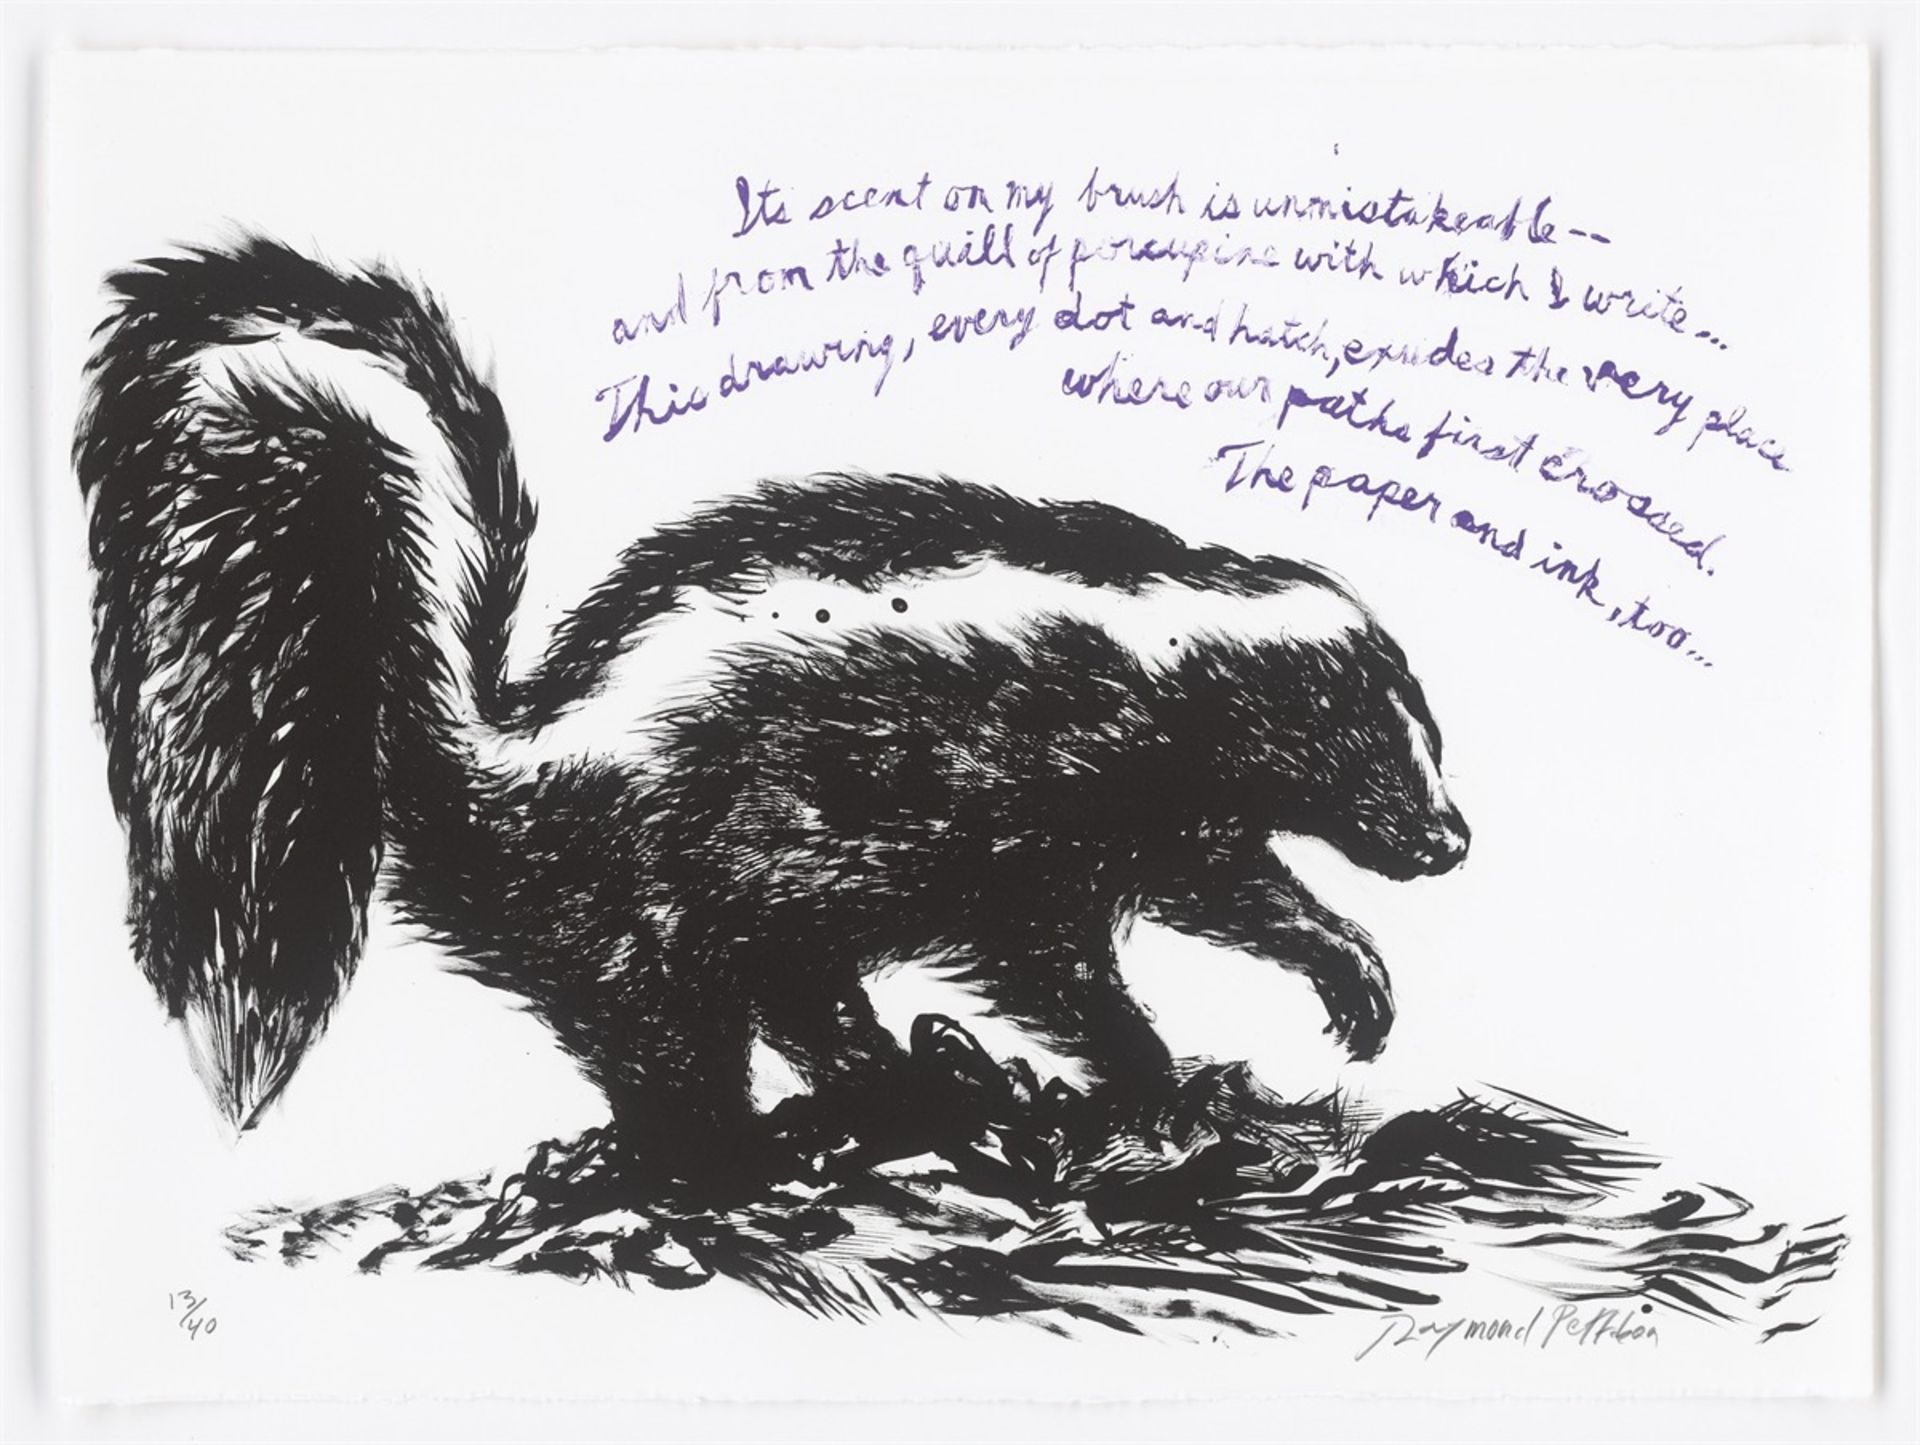 Its scent on my brush is unmistakeable--
and from the quill of porcupine with which I write...
This drawing, every dot and hatch, exudes the very place
where our paths first crossed.
The paper and ink, too...
13/40
Raymond Pettibon